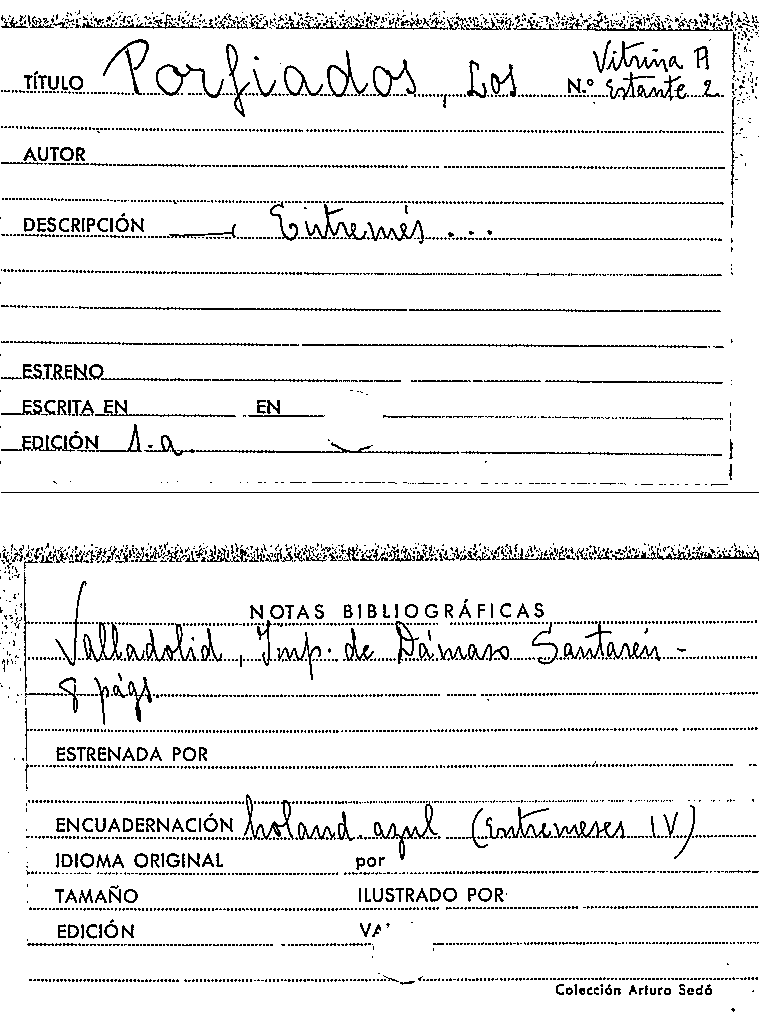 TÍTULO Porfiados, Los N.º Vitrina A
Estante 2
AUTOR
DESCRIPCIÓN Entremés...
ESTRENO
ESCRITA EN EN
EDICIÓN 1.a.
NOTAS BIBLIOGRÁFICAS
Valladolid, Imp. de Dámaso Santarén -
8 págs.
ESTRENADA POR
ENCUADERNACIÓN holand. azul (Entremeses IV)
IDIOMA ORIGINAL por
TAMAÑO ILUSTRADO POR
EDICIÓN
Colección Arturo Sedó